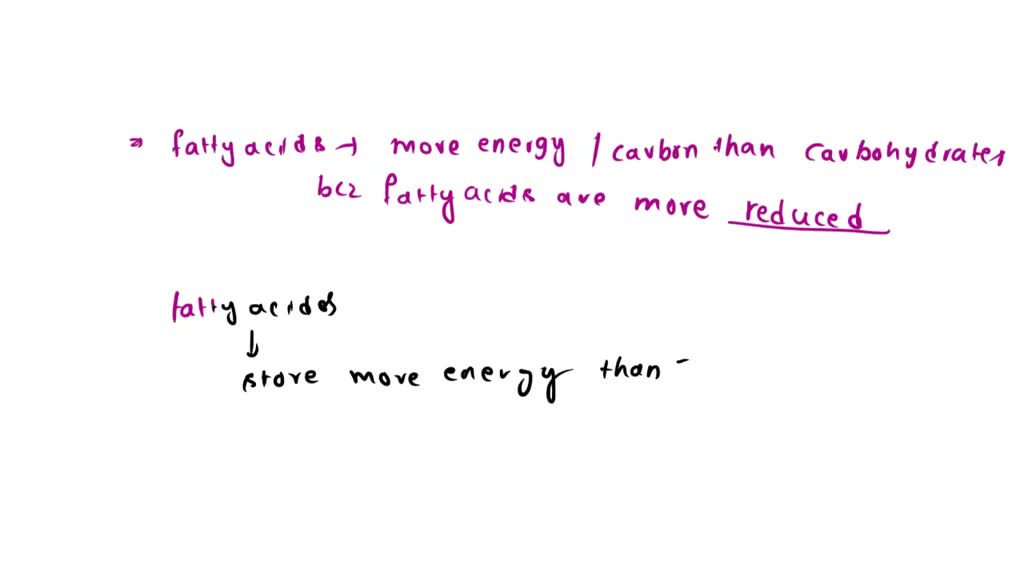 ⇒ fatty acids → more energy / carbon than carbohydrates
bcz fatty acids are more reduced
fatty acids
↓
store more energy than -